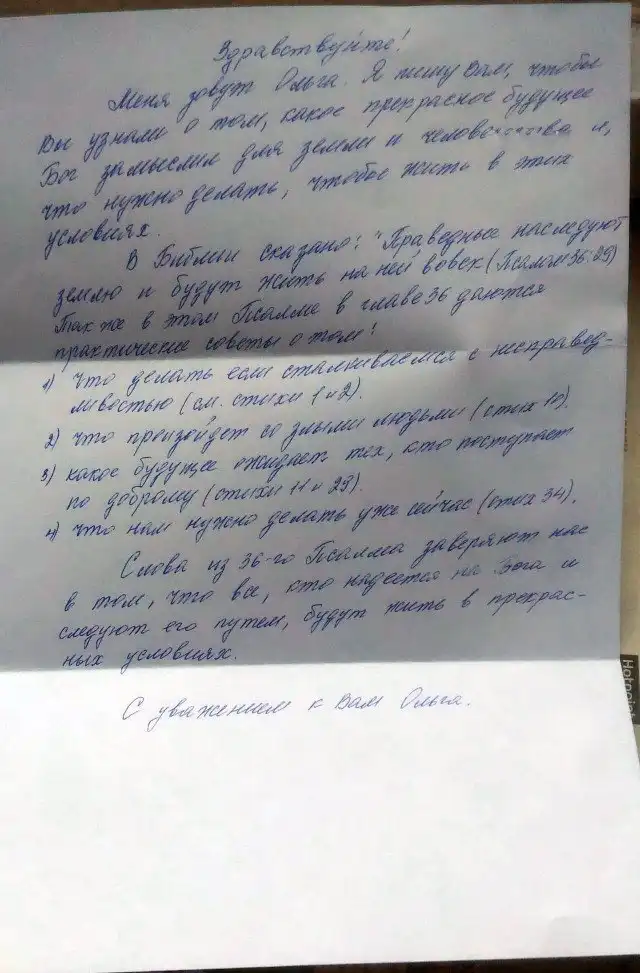 Здравствуйте!
Меня зовут Ольга. Я пишу Вам, чтобы
Вы узнали о том, какое прекрасное будущее
Бог замыслил для земли и человечества и,
что нужно делать, чтобы жить в этих
условиях.
В Библии сказано: "Праведные наследуют
землю и будут жить на ней вовек (Псалом 36:29)
Так же в этом Псалме в главе 36 даются
практические советы о том!
1) что делать если сталкиваемся с несправед-
ливостью (см. стихи 1 и 2).
2) что произойдет со злыми людьми (стих 10).
3) какое будущее ожидает тех, кто поступает
по доброму (стихи 11 и 29).
4) что нам нужно делать уже сейчас (стих 34).
Слова из 36-го Псалма заверяют нас
в том, что все, кто надеется на Бога и
следуют его путем, будут жить в прекрас-
ных условиях.
С уважением к Вам Ольга.